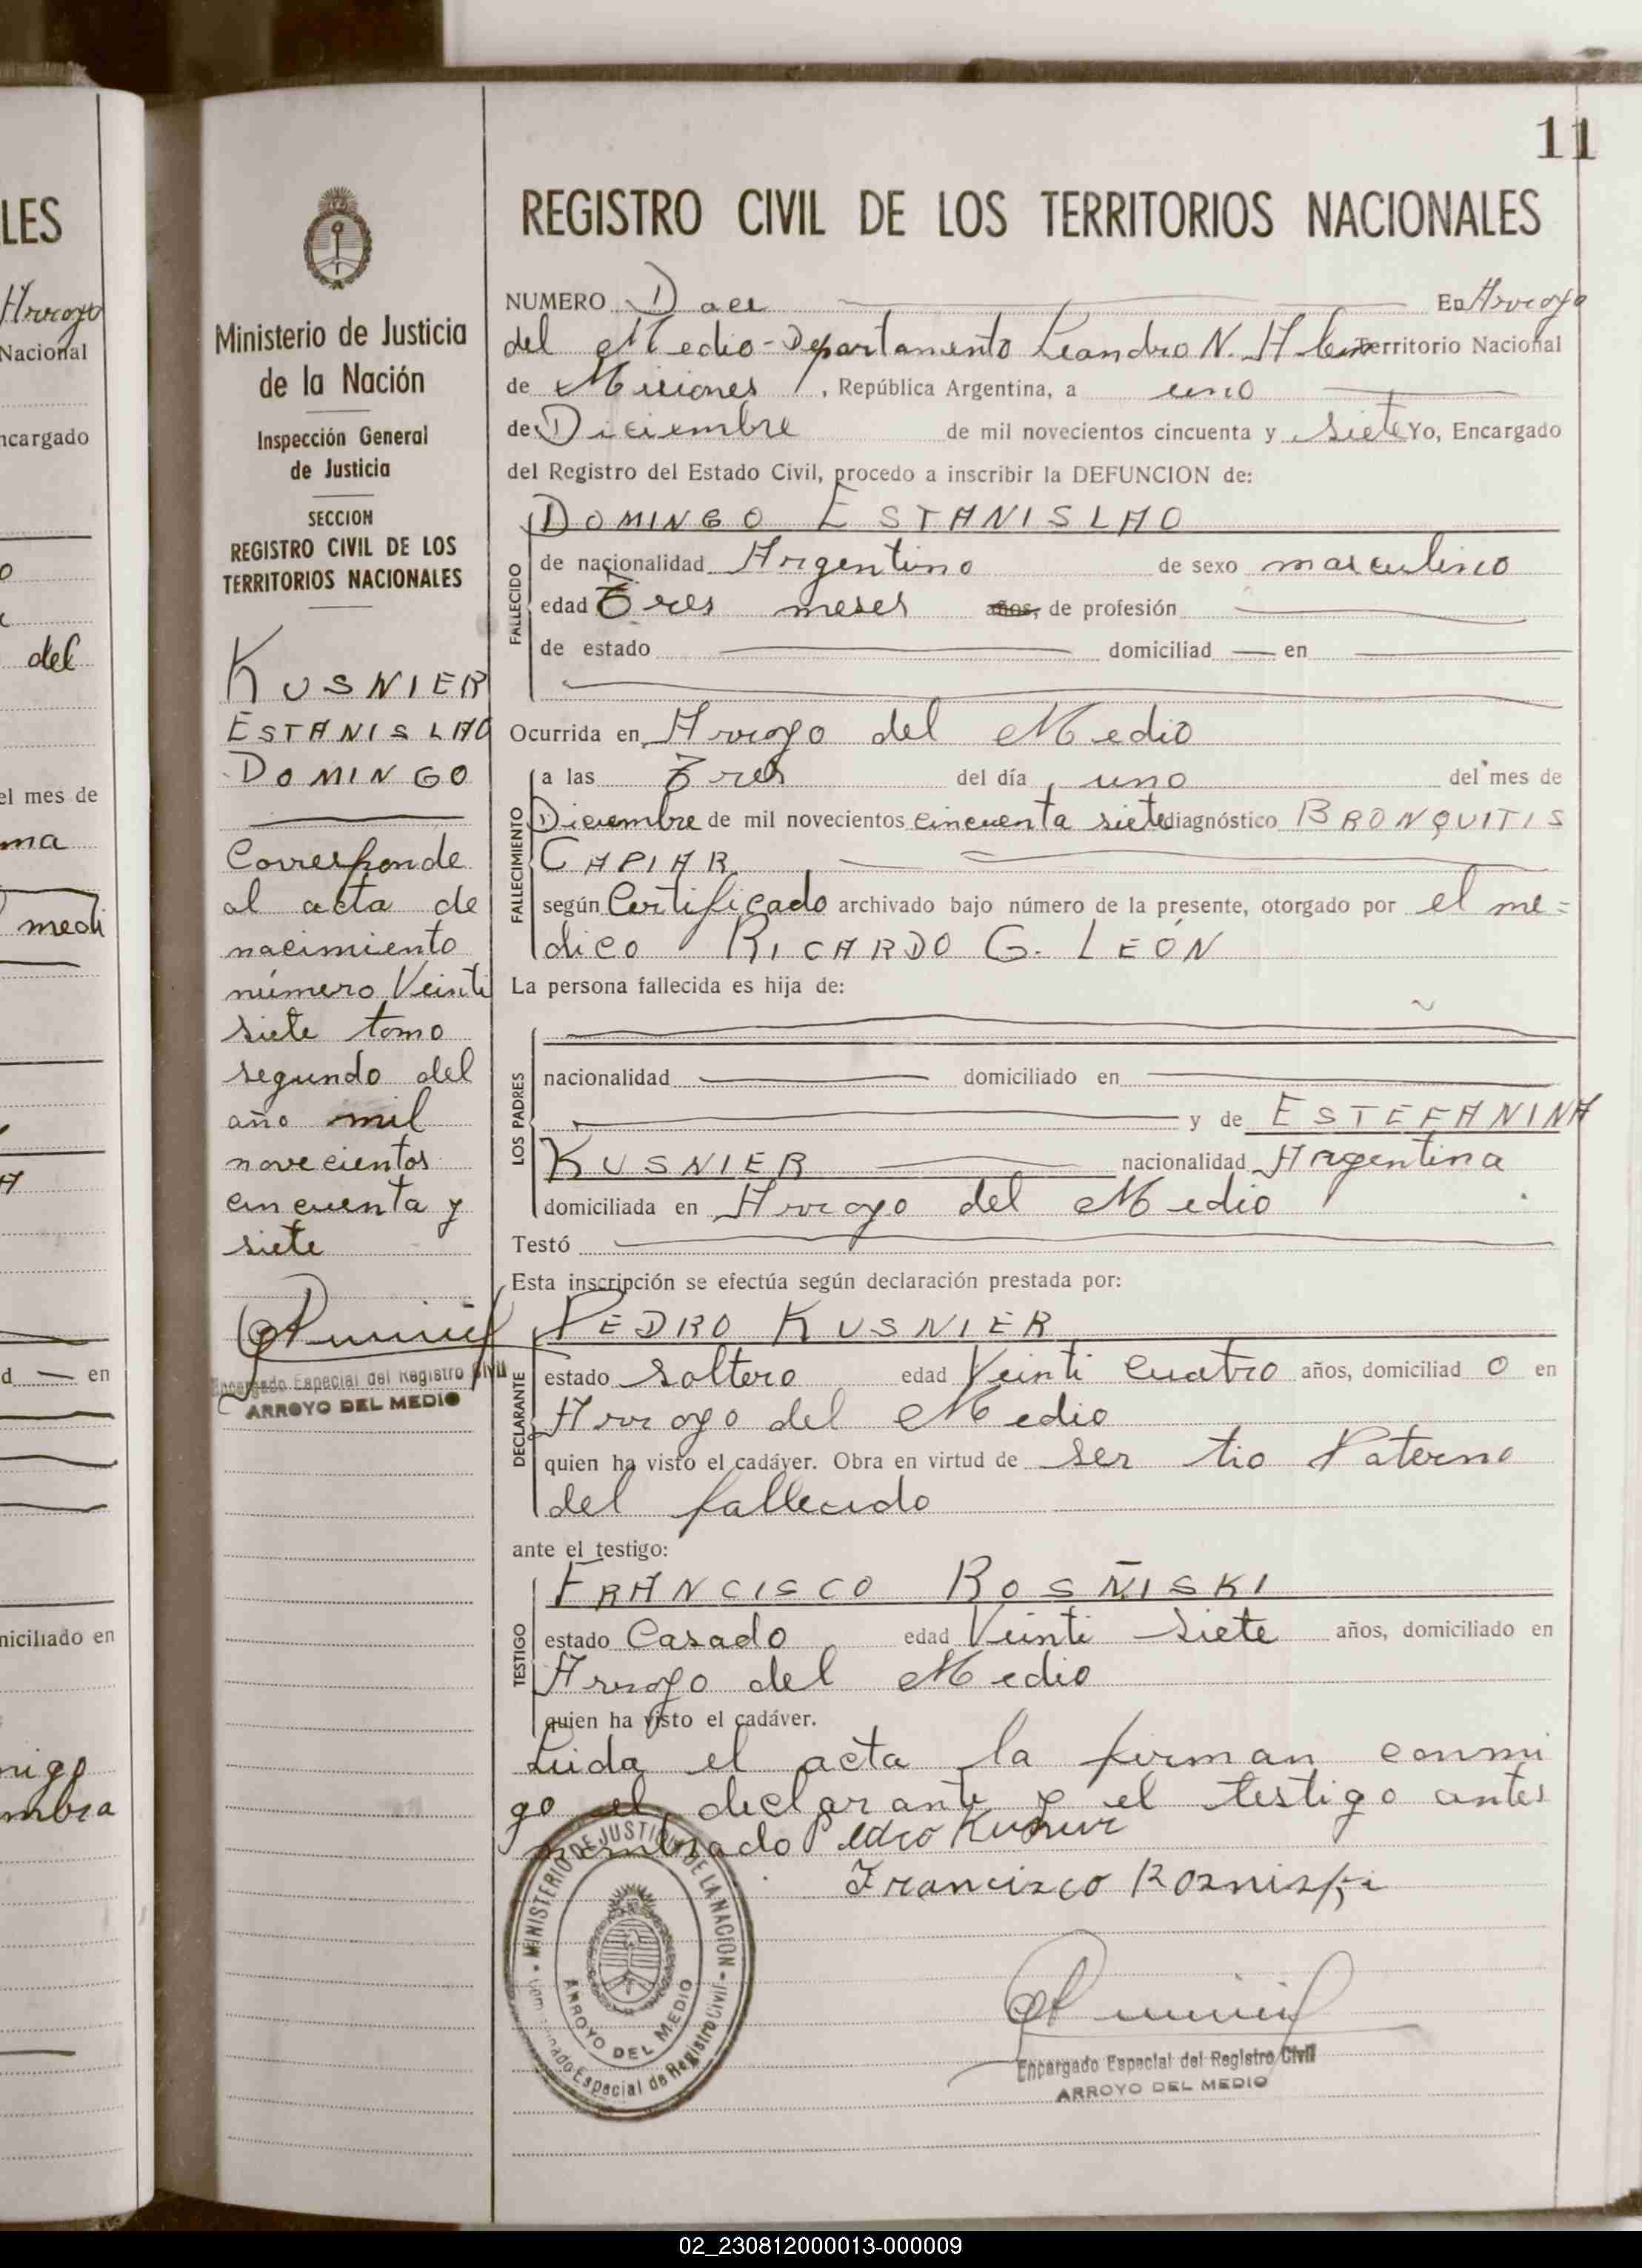 LES
Arroyo
Nacional
ncargado
del
el mes de
ma
medi
d — en
niciliado en
migo
mbra
11
Ministerio de Justicia
de la Nación
Inspección General
de Justicia
SECCION
REGISTRO CIVIL DE LOS
TERRITORIOS NACIONALES
KUSNIER
ESTANISLAO
DOMINGO
Corresponde
al acta de
nacimiento
número Veinti
siete tomo
segundo del
año mil
novecientos
cincuenta y
siete
Encargado Especial del Registro Civil
ARROYO DEL MEDIO
REGISTRO CIVIL DE LOS TERRITORIOS NACIONALES
NUMERO Doce En Arroyo
del Medio - Departamento Leandro N. Alem Territorio Nacional
de Misiones, República Argentina, a uno
de Diciembre de mil novecientos cincuenta y siete Yo, Encargado
del Registro del Estado Civil, procedo a inscribir la DEFUNCION de:
DOMINGO ESTANISLAO
FALLECIDO
de nacionalidad Argentino de sexo masculino
edad Tres meses años, de profesión
de estado domiciliad — en
Ocurrida en Arroyo del Medio
FALLECIMIENTO
a las Tres del día uno del mes de
Diciembre de mil novecientos cincuenta siete diagnóstico BRONQUITIS
CAPIAR
según Certificado archivado bajo número de la presente, otorgado por el me=
dico RICARDO G. LEÓN
La persona fallecida es hija de:
LOS PADRES
nacionalidad domiciliado en
y de ESTEFANINA
KUSNIER nacionalidad Argentina
domiciliada en Arroyo del Medio
Testó
Esta inscripción se efectúa según declaración prestada por:
DECLARANTE
PEDRO KUSNIER
estado Soltero edad Veinti Cuatro años, domiciliad o en
Arroyo del Medio
quien ha visto el cadáver. Obra en virtud de ser tio Paterno
del fallecido
ante el testigo:
TESTIGO
FRANCISCO ROSÑISKI
estado Casado edad Veinti Siete años, domiciliado en
Arroyo del Medio
quien ha visto el cadáver.
Leida el acta la firman conmi
go el declarante y el testigo antes
nombrado Pedro Kusnier
Francisco Rozniski
MINISTERIO DE JUSTICIA DE LA NACION
ARROYO DEL MEDIO
Especial de Registro Civil
Encargado Especial del Registro Civil
ARROYO DEL MEDIO
02_230812000013-000009